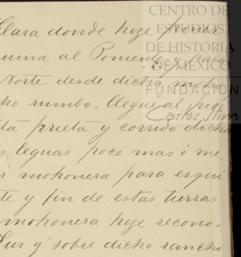 Clara donde hize poner
quina al Poniente y para
Norte desde dicha
cho rumbo, llegue al
da prieta y corrido dicho
s leguas poco mas ó me
mohonera para esqui
te y fin de estas tierras
mohonera hize recono-
Sur y sobre dicho rancho
CENTRO DE
ESTUDIOS
DE HISTORIA
DE MÉXICO
FUNDACIÓN
Carlos Slim